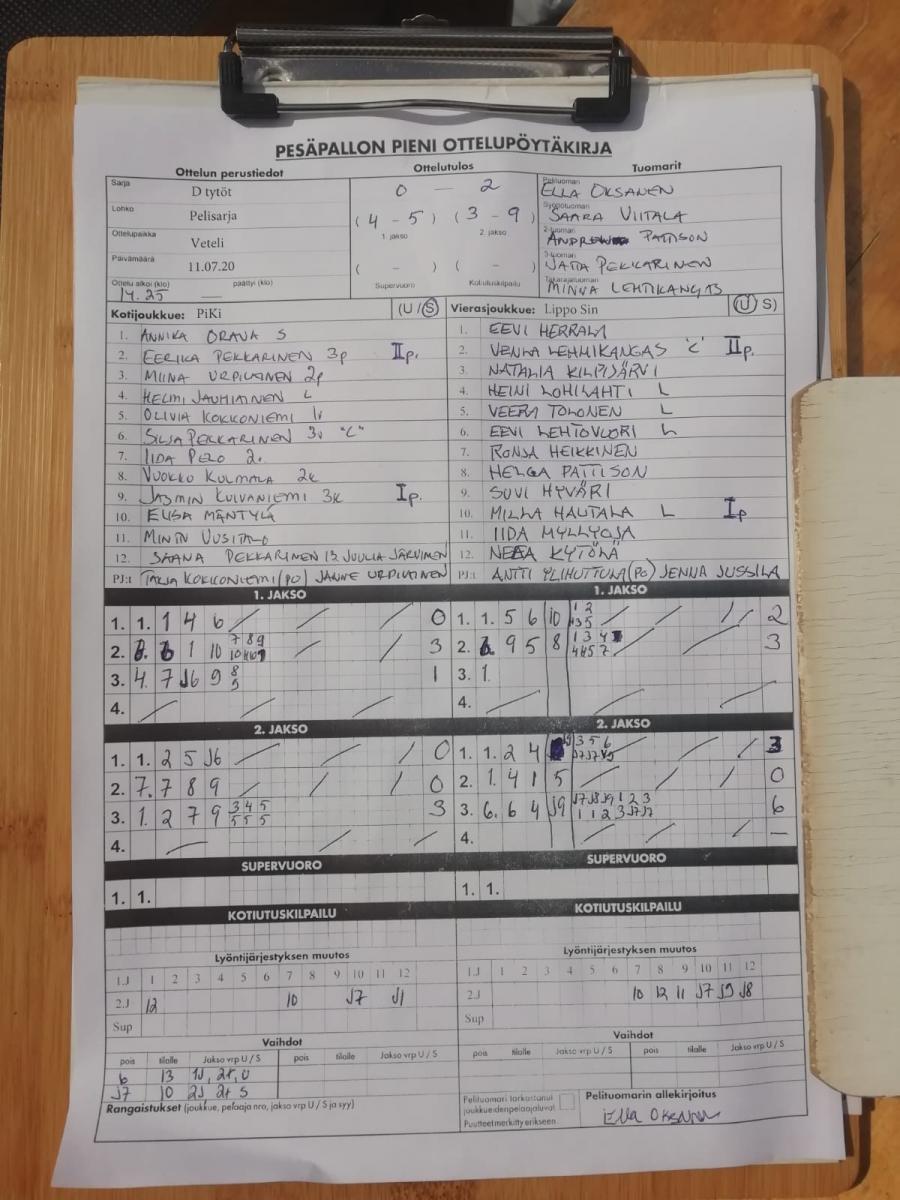 PESÄPALLON PIENI OTTELUPÖYTÄKIRJA
Ottelun perustiedot Ottelutulos Tuomarit
Sarja D tytöt 0 - 2 Pelituomari ELLA OKSANEN
Lohko Pelisarja (4 - 5) (3 - 9) Syöttötuomari SAARA VIITALA
1. jakso 2. jakso
Ottelupaikka Veteli 2-tuomari PATTISON
Päivämäärä 11.07.20 ( - ) ( - ) 3-tuomari JATTA PEKKARINEN
Ottelu alkoi (klo) päättyi (klo) Supervuoro Kotiutuskilpailu Takarajatuomari
14.25 — MINNA LEHTIKANGAS
Kotijoukkue: PiKi (U/S) Vierasjoukkue: Lippo Sin (U S)
1. ANNIKA ORAVA S 1. EEVI HERRALA
2. EERIKA PEKKARINEN 3p IIp. 2. VENLA LEHMIKANGAS "C" IIp.
3. MIINA URPILAINEN 2p 3. NATALIA KILPISJÄRVI
4. HELMI JAUHIAINEN L 4. HEINI LOHILAHTI L
5. OLIVIA KOKKONIEMI 1v 5. VEERA TOLONEN L
6. SILJA PEKKARINEN 3v "C" 6. EEVI LEHTOVUORI L
7. IIDA PELO 2v 7. RONJA HEIKKINEN
8. VUOKKO KULMALA 2k 8. HELGA PATTISON
9. JASMIN KUIVANIEMI 3k Ip. 9. SUVI HYVÄRI
10. ELISA MÄNTYLÄ 10. MILLA HAUTALA L Ip
11. MINTN UUSITALO 11. IIDA MYLLYOJA
12. SAANA PEKKARINEN 13 JUULIA JÄRVINEN 12. NEEA KYTÖLÄ
PJ:t TARJA KOKKONIEMI (PO) JANNE URPILAINEN PJ:t ANTTI YLIHUTTULA (PO) JENNA JUSSILA
1. JAKSO 1. JAKSO
1. 1. 1 4 6 0 1. 1. 5 6 10 1 2 2
3 5
2. 1 10 7 8 9 3 2. 9 5 8 1 3 4 3
4 4 5 7
3. 4. 7 J6 9 8 1 3. 1.
9
4. 4.
2. JAKSO 2. JAKSO
1. 1. 2 5 J6 0 1. 1. 2 4 3 5 6 3
J7 J7 J9
2. 7. 7 8 9 0 2. 1. 4 1 5 0
3. 1. 2 7 9 3 4 5 3 3. 6. 6 4 J9 J7 J8 J9 1 2 3 6
5 5 5 1 1 2 3 J7 J7
4. 4. —
SUPERVUORO SUPERVUORO
1. 1. 1. 1.
KOTIUTUSKILPAILU KOTIUTUSKILPAILU
Lyöntijärjestyksen muutos Lyöntijärjestyksen muutos
1.J 1 2 3 4 5 6 7 8 9 10 11 12 1.J 1 2 3 4 5 6 7 8 9 10 11 12
2.J 12 10 J7 J1 2.J 10 12 11 J7 J9 J8
Sup Sup
Vaihdot Vaihdot
pois tilalle Jakso vrp U / S pois tilalle Jakso vrp U / S pois tilalle Jakso vrp U / S pois tilalle Jakso vrp U / S
6 13 1J, 2v, U
J7 10 2J 2v S
Rangaistukset (joukkue, pelaaja nro, jakso vrp U / S ja syy) Pelituomari tarkastanut joukkueiden pelaajaluvat Pelituomarin allekirjoitus
Puutteet merkitty erikseen Ella Oksanen